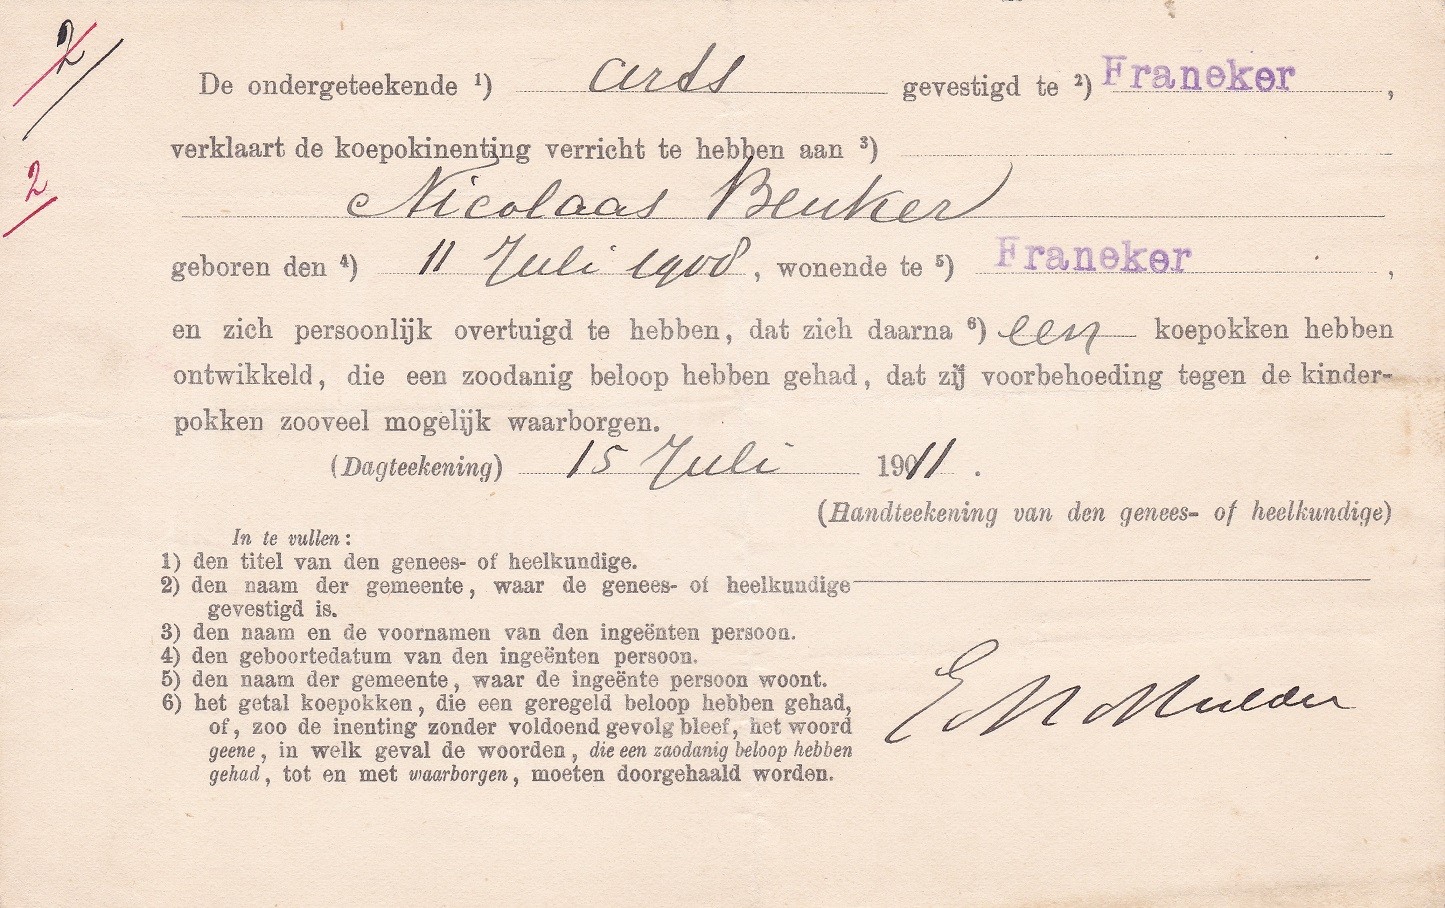 2
De ondergeteekende 1) arts gevestigd te 2) Franeker,
verklaart de koepokinenting verricht te hebben aan 3)
2
Nicolaas Beuker
geboren den 4) 11 Juli 1908, wonende te 5) Franeker,
en zich persoonlijk overtuigd te hebben, dat zich daarna 6) een koepokken hebben
ontwikkeld, die een zoodanig beloop hebben gehad, dat zij voorbehoeding tegen de kinder-
pokken zooveel mogelijk waarborgen.
(Dagteekening) 15 Juli 1911.
(Handteekening van den genees- of heelkundige)
In te vullen:
1) den titel van den genees- of heelkundige.
2) den naam der gemeente, waar de genees- of heelkundige
gevestigd is.
3) den naam en de voornamen van den ingeënten persoon.
4) den geboortedatum van den ingeënten persoon.
5) den naam der gemeente, waar de ingeënte persoon woont.
6) het getal koepokken, die een geregeld beloop hebben gehad,
of, zoo de inenting zonder voldoend gevolg bleef, het woord
geene, in welk geval de woorden, die een zaodanig beloop hebben
gehad, tot en met waarborgen, moeten doorgehaald worden.
E M Mulder